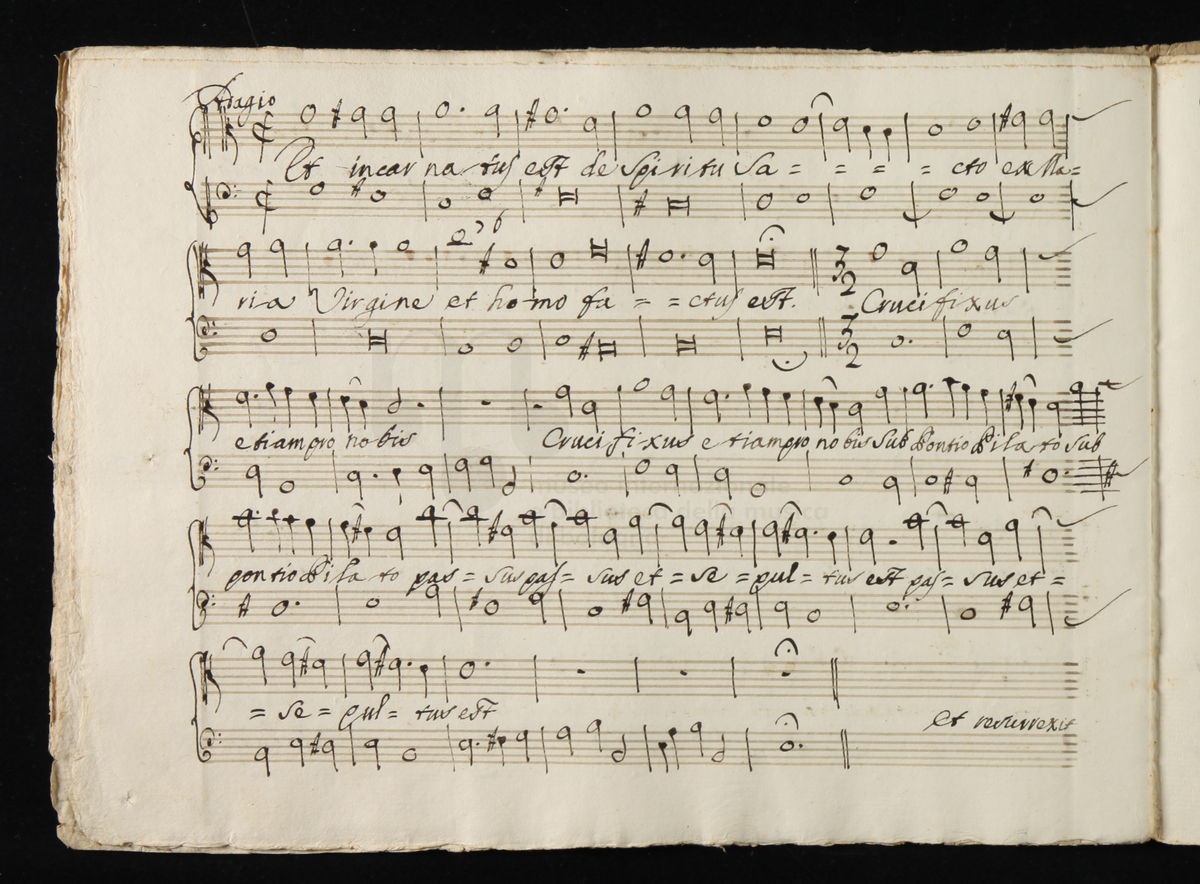 Adagio
Et incarnatus est de Spiritu Sa = = = = cto ex Ma=
7 6
ria Virgine et homo fa = = ctus est. Crucifixus
3 2
3 2
etiam pro nobis Crucifixus etiam pro nobis sub Pontio Pilato sub
pontio Pilato pas= sus pas= sus et = se = pul= tus est pas= sus et =
= se = pul= tus est
Et resurrexit